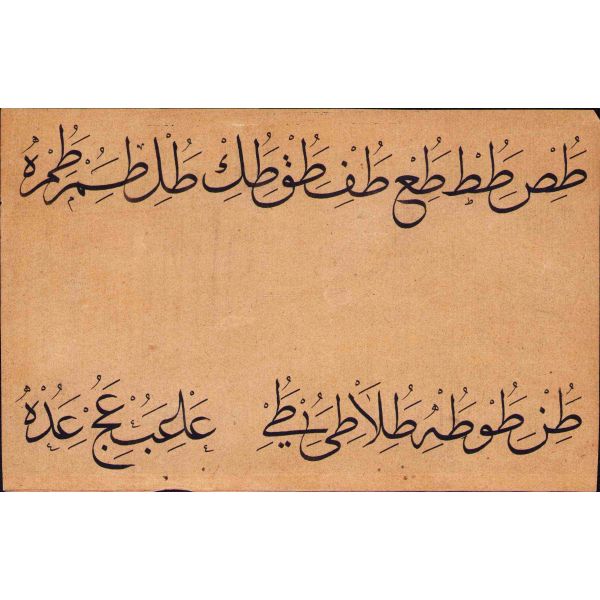 طص طط طع طف طق طك طل طم طمره
طن طو طه طلا طى طے عا عب عج عد عده